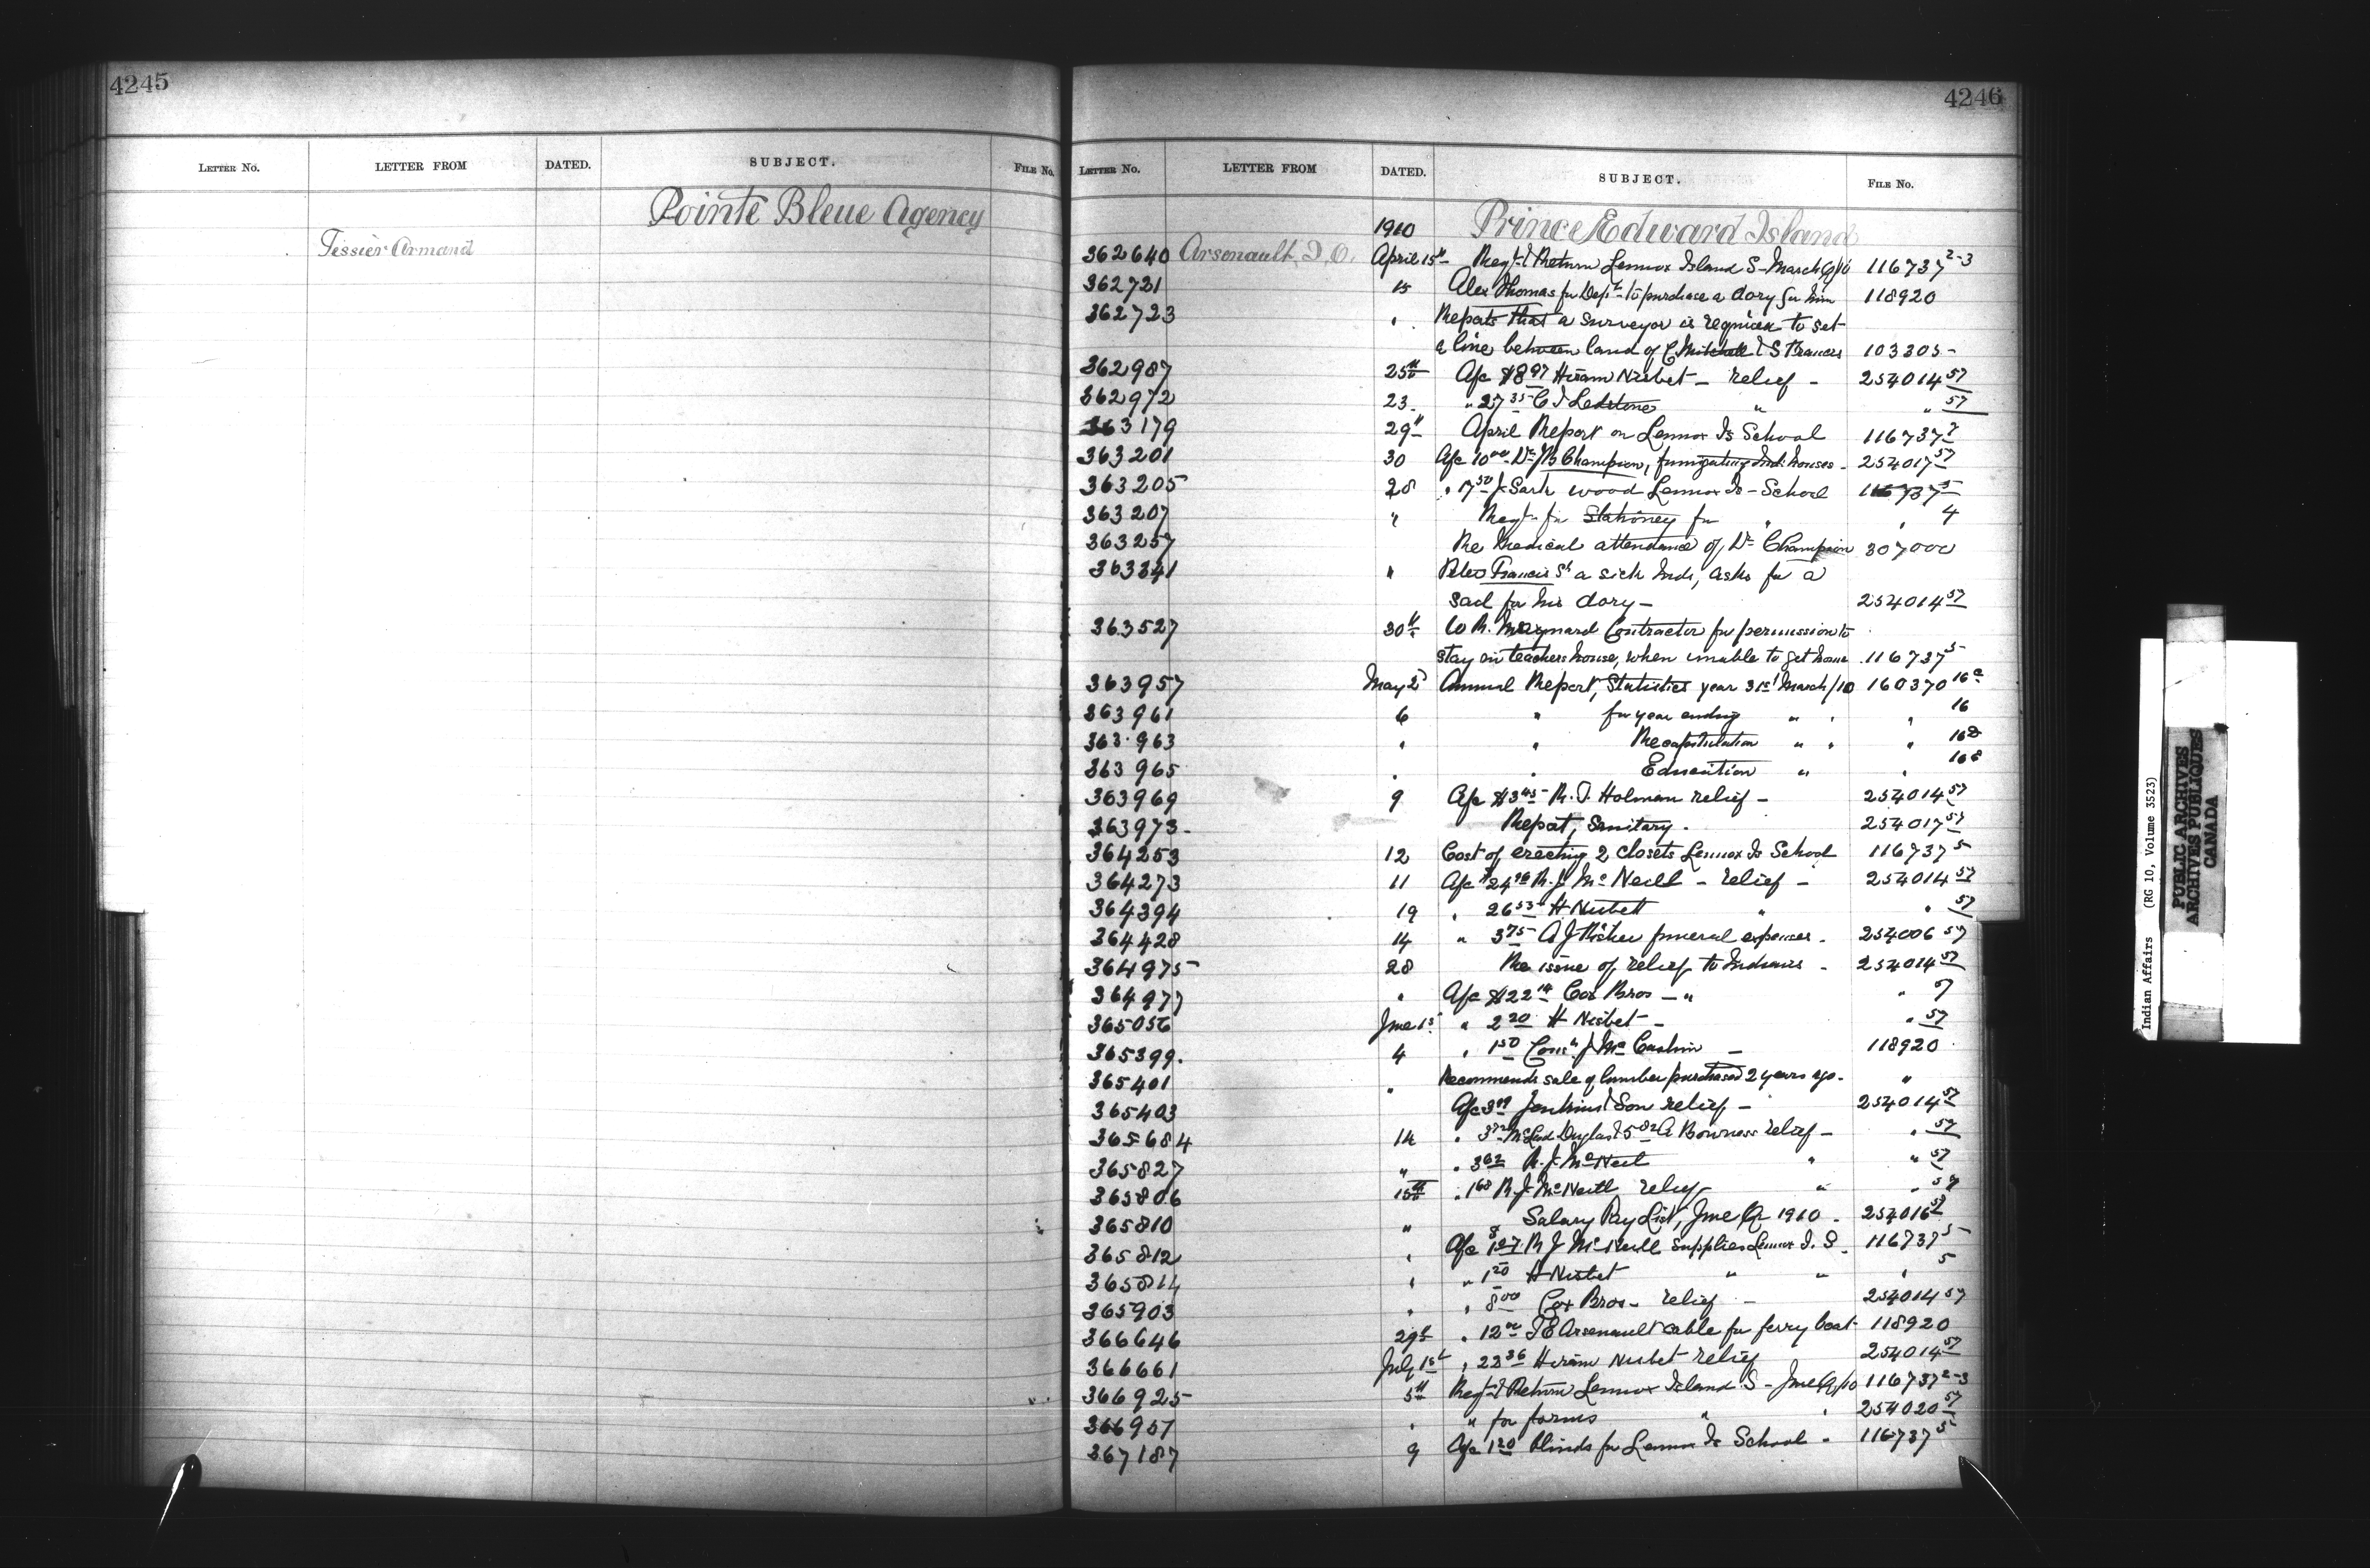 4245
LETTER NO. LETTER FROM DATED. SUBJECT. FILE No.
Pointe Bleue Agency
Tessier Armand
4246
LETTER NO. LETTER FROM DATED. SUBJECT. FILE No.
1910 Prince Edward Island
362640 Arsenault, J. O. April 15th Regr & Return Lennox Island S- March Q/10 116737 2-3
362721 15 Alex Thomas for Dept to purchase a dory for him 118920
362723 " Reports that a surveyor is required to set
a line between land of C Mitchell & S Francis 103305-
362987 25th A/c $8 97 Hiram Nisbet - relief - 254014 57
362972 23. " 27 35 C I " " 57
363179 29th April Report on Lennox Is School 116737 2
363201 30 A/c 10 00 Dr J B Champion, fumigating Ind. houses - 254017 57
363205 28 " 17 50 J Sark wood Lennox Is - School 116737 5
363207 " Reqn for Stationey for " " 4
363257 Re Medical attendance of Dr Champion 307000
363341 " Peter Francis Sr a sick Indn, asks for a
sail for his dory - 254014 57
363527 30th W R. Maynard Contractor for permission to
stay in teachers house, when unable to get home 116737 5
363957 May 2 Annual Report, Statistics year 31st March/10 160370 16c
363961 6 " for year ending " " " 16
363963 " " Recapitulation " " " 16
363965 " " Education " " 16
363969 9 A/c $3 45 R. T. Holman relief - 254014 57
363973. Report, Sanitary. 254017 57
364253 12 Cost of erecting 2 closets Lennox Is School 116737 5
364273 11 A/c $24 R. J. Mc Neill - relief - 254014 57
364394 19 " 26 53 H Nisbett " " 57
364428 14 " 3 75 A J funeral expenses. 254006 57
364975 28 Re issue of relief to Indians - 254014 57
364977 " A/c $22 14 Cox Bros - " " 57
365056 June 1st " 2 20 H Nisbet - " 57
365399. 4 " 1 50 J Mc - 118920
365401 " Recommends sale of lumber purchased 2 years ago. "
365403 A/c 3 Jenkins & Son relief - 254014 57
365684 14 " 3 McLeod & 5 A Bowness relief - " 57
365827 " " 3 62 R. J. McNeil " " 57
365806 15th " 1 68 R J McNeill relief " " 57
365810 " Salary Pay List, June Qr 1910 - 254016 57
365812 " A/c R J McNeill supplies Lennox I. S. 116737 5
365814 " " 1 20 H Nisbet " " " 5
365903 " " 8 00 Cox Bros - relief - 254014 57
366646 29th " 12 00 J E Arsenault cable for ferry boat - 118920
366661 July 1st " 22 36 Hiram Nisbet relief 254014 57
366925 5th Reqn & Return Lennox Island S - June Q/10 116737 2-3
366957 " " for forms " " 254020 57
367187 9 A/c 1 20 blinds for Lennox Is School - 116737 5
Indian Affairs (RG 10, Volume 3523)
PUBLIC ARCHIVES
ARCHIVES PUBLIQUES
CANADA